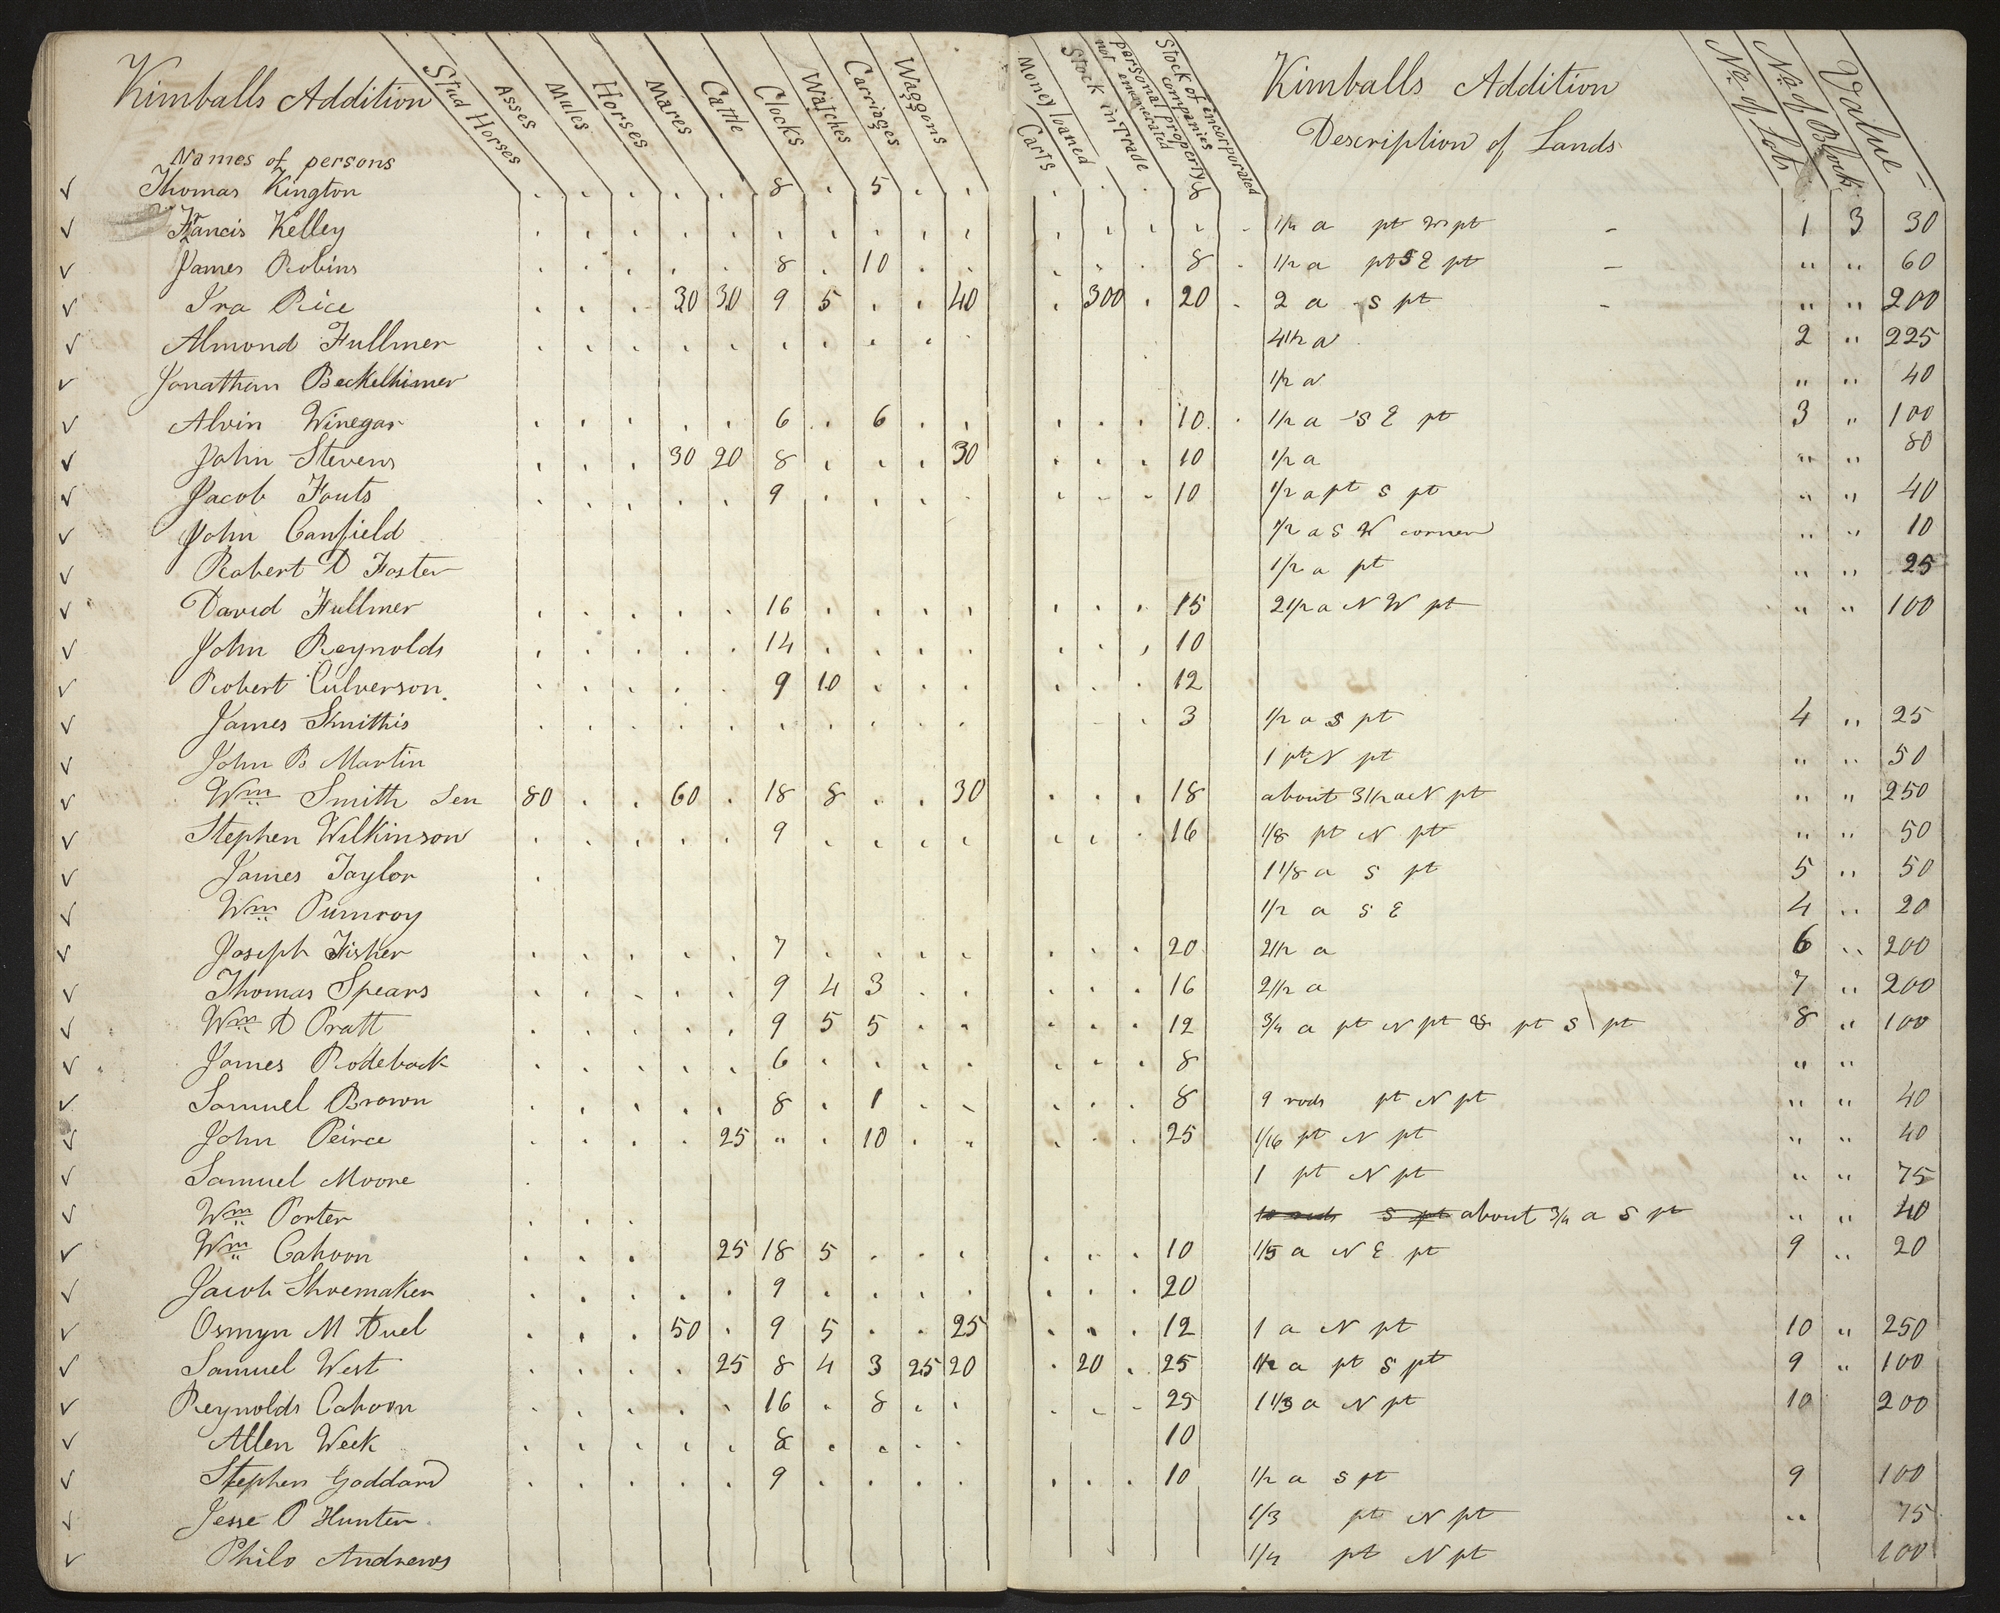 Kimballs Addition
Names of persons
Stud Horses
Asses
Mules
Horses
Mares
Cattle
Clocks
Watches
Carriages
Waggons
Carts
Money loaned
Stock in Trade
personal property not enumerated
Stock of incorporated companies
Kimballs Addition
Description of Lands
No. of Lots
No. of Block
Value
Thomas Kington . . . . . 8 . 5 . . . . . 8
Francis Kelley . . . . . . . . . . . . . . 1/4 a pt W pt - 1 3 30
James Robins . . . . . 8 . 10 . . . . . 8 . 1/2 a pt S E pt - " " 60
Ira Rice . . . 30 30 9 5 . . 40 . 300 . 20 . 2 a S pt - " " 200
Almond Fullmer . . . . . . . . . . 4 1/2 a 2 " 225
Jonathan Beckelhimer 1/2 a " " 40
Alvin Winegar . . . . . 6 . 6 . . . . . 10 . 1/2 a S E pt 3 " 100
John Stevens . . . 30 20 8 . . . 30 . . . 10 1/2 a " " 80
Jacob Fouts . . . . . 9 . . . . . . . 10 1/2 a pt S pt " " 40
John Canfield 1/2 a S W corner " " 10
Robert D Foster 1/2 a pt " " 25
David Fullmer . . . . . 16 . . . . . . . 15 2 1/2 a N W pt " " 100
John Reynolds . . . . . 14 . . . . . . . 10
Robert Culverson . . . . . 9 10 . . . . . . 12
James Smithis . . . . . . . . . . . 3 1/2 a S pt 4 " 25
John B Martin 1 pt N pt " " 50
Wm Smith Sen 80 . . 60 . 18 8 . . 30 . . . 18 about 3 1/2 a N pt " " 250
Stephen Wilkinson . . . . . 9 . . . . . . . 16 1/8 pt N pt " " 50
James Taylor . 1 1/8 a S pt 5 " 50
Wm Pumroy 1/2 a S E 4 " 20
Joseph Fisher . . . . . 7 . . . . . . . 20 2 1/2 a 6 " 200
Thomas Spears . . . . . 9 4 3 . . . . . 16 2 1/2 a 7 " 200
Wm D Pratt . . . . . 9 5 5 . . . . . 12 3/4 a pt N pt & pt S pt 8 " 100
James Rodeback . . . . . 6 . . . . . . . 8 " "
Samuel Brown . . . . . 8 . 1 . . . . . 8 9 rods pt N pt " " 40
John Peirce . . . . 25 " . 10 . " . . . 25 1/16 pt N pt " " 40
Samuel Moore . 1 pt N pt " " 75
Wm Porter . . . 10 rods S pt about 3/4 a S pt " " 40
Wm Cahoon . . . 25 18 5 . . . . . . 10 1/5 a N E pt 9 " 20
Jacob Shoemaker . . . . . 9 . . . . . . . 20
Osmyn M Duel . . . 50 . 9 5 . . 25 . . . 12 1 a N pt 10 " 250
Samuel West . . . . 25 8 4 3 25 20 . 20 . 25 1/2 a pt S pt 9 " 100
Reynolds Cahoon . . . . . 16 . 8 . . . . . 25 1 1/3 a N pt 10 200
Allen Week . . . . . 8 . . . . 10
Stephen Goddard . . . . . 9 . . . . . . . 10 1/2 a S pt 9 100
Jesse P Hunter 1/3 pt N pt " 75
Philo Andrews 1/4 pt N pt 100